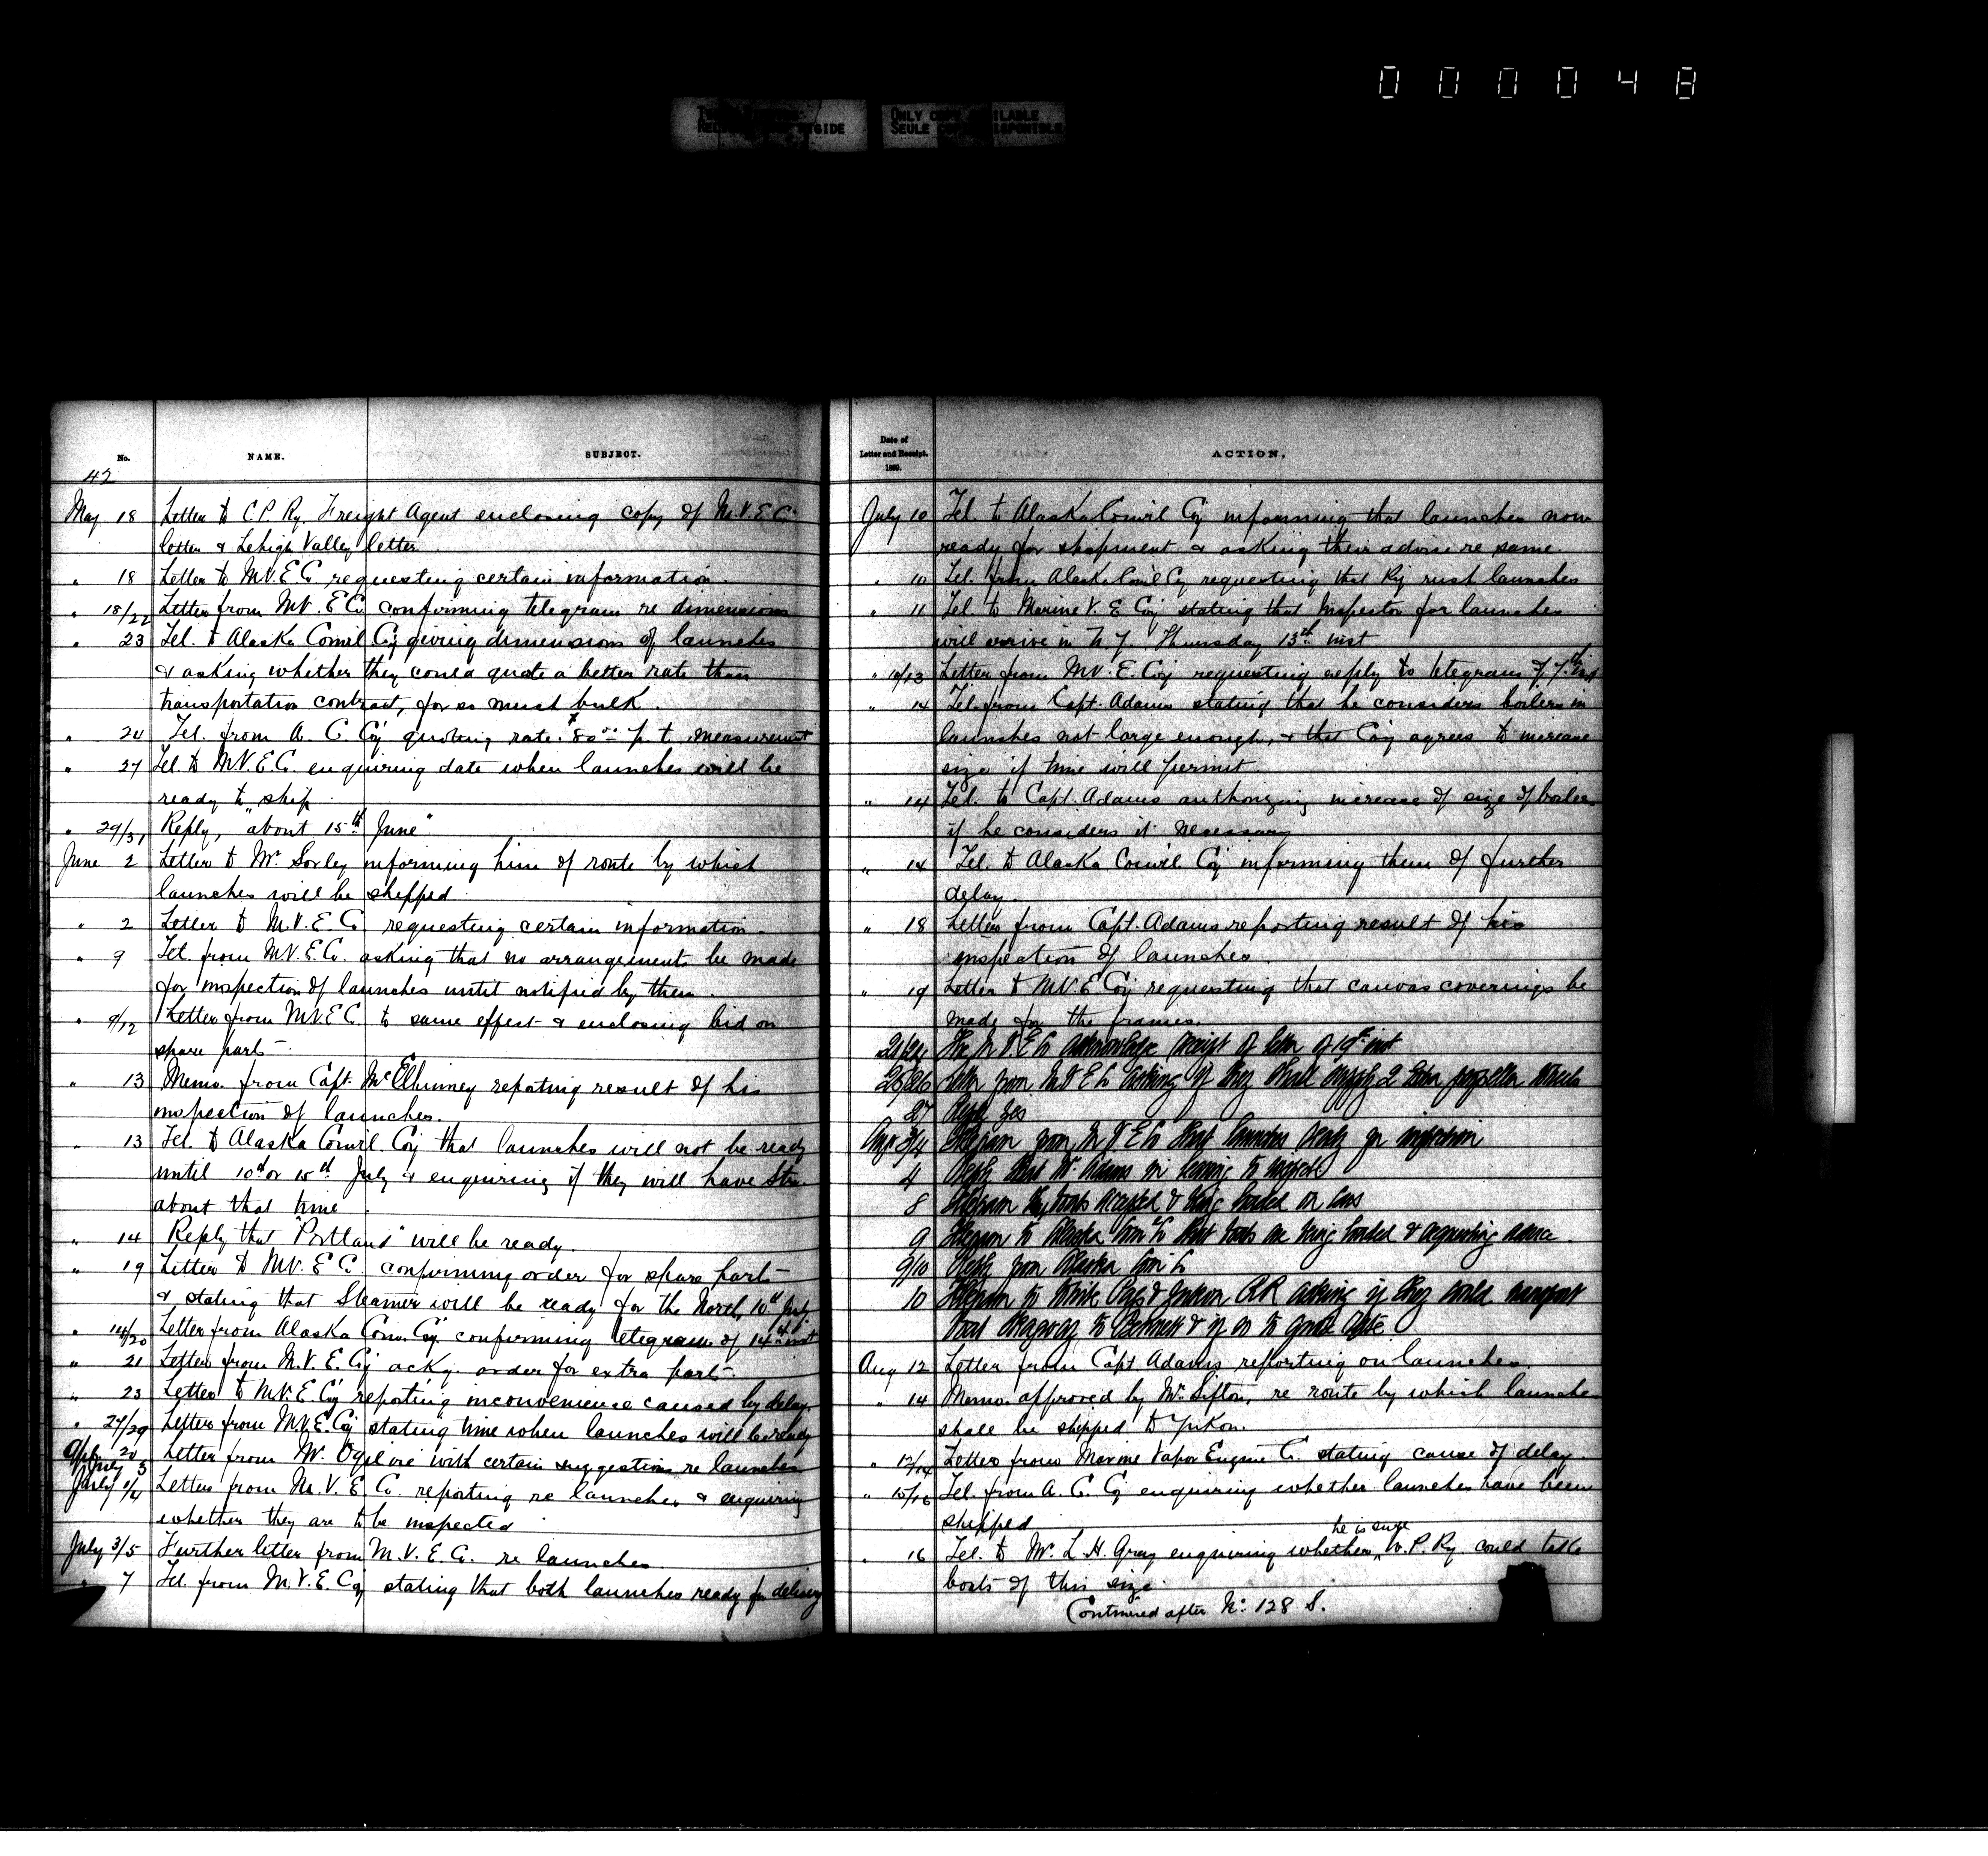 0 0 0 0 4 8
ONLY COPY AVAILABLE
SEULE COPIE DISPONIBLE
No. NAME. SUBJECT.
42
May 18 Letter to C.P. Ry. Freight Agent enclosing copy of M.V.E.C.
letter & Lehigh Valley letter
" 18 Letter to M.V.E.C. requesting certain information.
" 18/22 Letter from M.V.E.C. confirming telegram re dimensions
" 23 Tel. to Alaska Com'l Co'y giving dimensions of launches
& asking whether they could quote a better rate than
transportation contract, for so must bulk.
" 24 Tel. from A. C. Co'y quoting rate. $80.00 p. t. measurement
" 27 Tel. to M.V.E.C. enquiring date when launches will be
ready to ship
" 29/31 Reply, "about 15th June"
June 2 Letter to Mr Sorley informing him of route by which
launches will be shipped.
" 2 Letter to M.V.E.C. requesting certain information.
" 9 Tel. from M.V.E.Co. asking that no arrangements be made
for inspection of launches until notified by them.
" 9/12 Letter from M.V.E.C. to same effect & enclosing bid on
spare parts.
" 13 Memo. from Capt. McElhinney reporting result of his
inspection of launches.
" 13 Tel. to Alaska Com'l Co'y that launches will not be ready
until 10th or 15th July & enquiring if they will have Str.
about that time.
" 14 Reply that "Portland" will be ready.
" 19 Letter to M.V.E.C. confirming order for spare parts
& stating that Steamer will be ready for the North, 10th July.
" 14/20 Letter from Alaska Com. Co'y. confirming telegram of 14th inst
" 21 Letter from M.V.E.Co'y acky. order for extra parts.
" 23 Letter to M.V.E.Co'y reporting inconvenience caused by delay.
" 27/29 Letter from M.V.E.Co'y stating time when launches will be ready
20 July 3 Letter from Mr. Ogilvie with certain suggestions re launches
July 1/4 Letter from M.V.E.C. reporting re launches & enquiring
whether they are to be inspected
July 3/5 Further letter from M.V.E.C. re launches
" 7 Tel. from M.V.E.Co'y stating that both launches ready for delivery
Date of Letter and Receipt. 1899. ACTION.
July 10 Tel. to Alaska Com'l Co'y informing that launches now
ready for shipment & asking their advise re same.
" 10 Tel. from Alaska Com'l Co'y requesting that Ry rush launches
" 11 Tel. to Marine V. E. Co'y stating that Inspector for launches
will arrive in N.Y. Thursday 13th inst
" 10/13 Letter from M.V.E.Co'y requesting reply to telegram of 7th inst
" 14 Tel. from Capt. Adams stating that he considers boilers in
launches not large enough, & that Co'y agrees to increase
size if time will permit.
" 14 Tel. to Capt. Adams authorizing increase of size of boiler
if he considers it necessary
" 14 Tel. to Alaska Com'l Co'y informing them of further
delay.
" 18 Letter from Capt. Adams reporting result of his
inspection of launches.
" 19 Letter to M.V.E.Co'y requesting that canvas coverings be
made for the frames.
21/24 The M V E Co acknowledge receipt of letter of 19th inst
25/26 Letter from M V E Co asking if they shall supply 2 extra propeller wheels
27 Reply Yes
Aug 3/4 Telegram from M V E Co that launches ready for inspection
4 Reply that Mr Adams is leaving to inspect
8 Telegram boats accepted & being loaded on cars
9 Telegram to Alaska Com'l Co that boats are being loaded & requesting advice
9/10 Reply from Alaska Com'l Co
10 Telegram to White Pass & Yukon RR asking if they could transport
boat Skagway to Bennett & if so to quote rate.
Aug 12 Letter from Capt. Adams reporting on launches.
" 14 Memo. approved by Mr. Sifton, re route by which launches
shall be shipped to Yukon.
" 12/14 Letter from Marine Vapor Engine Co. stating cause of delay.
" 15/16 Tel. from A. C. Co'y enquiring whether launches have been
shipped
" 16 Tel. to Mr. L. H. Gray enquiring whether he is sure W. P. Ry. could take
boats of this size.
Continued after No. 128 S.